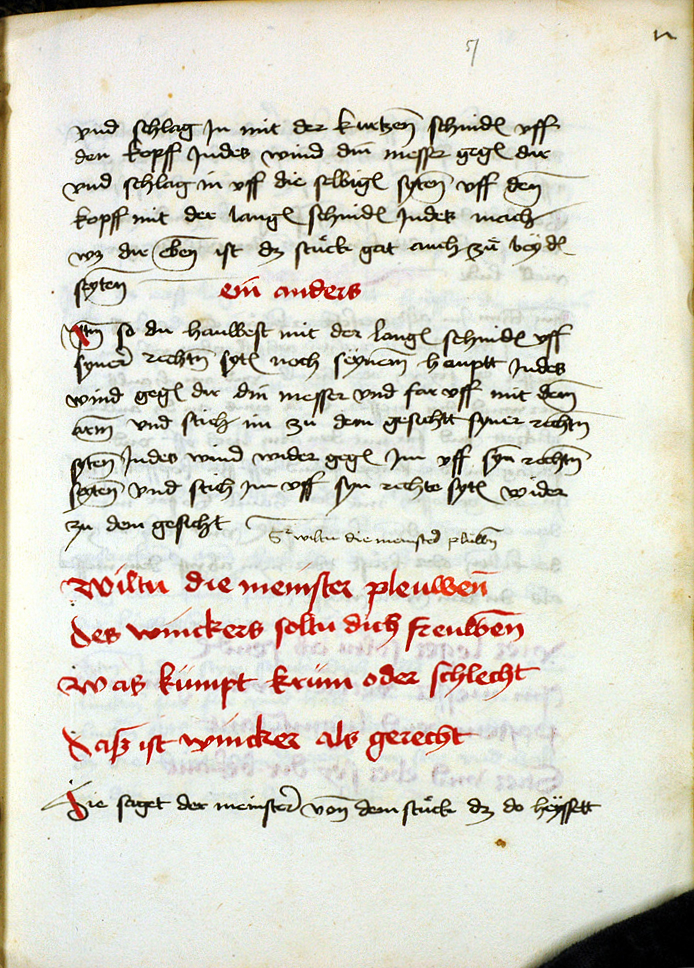 51
vnd schlag In mit der kurtzen̄ schnid̄ vff
den kopff Indes wind din messer gegn̄ dir
vnd schlag in vff die selbign̄ syten̄ vff den̄
kopff mit der langn̄ schnid̄ Indes mach
wz dir eben̄ ist dz stůck gat auch zů beyd̄
seyten̄ ein anders
Itm̄ so du hauwest mit der langn̄ schnid̄ vff
syner̄ rechtn̄ sytn̄ noch seÿnem̄ hauptt Indes
wind gegn̄ dir din messer vnd far vff mit dem̄
arm̄ vnd stich im zu dem gesichtt syner rechtn̄
syten̄ Indes wind wider gegn̄ Im vff syn̄ rechtn̄
seyten̄ vnd stich Im vff syn rechte sytn̄ wider
zu dem gesicht
wiltu die meinster pleuwen̄
Wiltu die meinster pleuwen̄
Des winckers soltu dich freuwen̄
Was kumpt krum oder schlecht
Daß ist wincker als gerecht
Hie saget der meinster̄ von̄ dem stůck dz do heÿssett